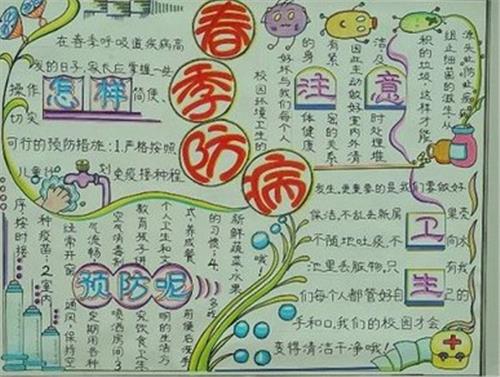 春季防病
在春季呼吸道疾病高
发的日子,家长应掌握一些
操作怎样简便、
切实
可行的预防措施:1.严格按照
儿童计划免疫接种程
序按时接
种疫苗;2.室内
经常开窗通风,保持空
气流畅定期用各种
空气消毒剂喷洒房间;3.
教育孩子讲究饮食卫生
个人卫生和文明的生活方
式,养成餐前便后洗手
的习惯;4.多吃
新鲜蔬菜水果
哦!
预防呢
注意
校园环境卫生的
好坏与我们每个人
的身体健康
有紧密的关系
因此主动做好室内外清
洁及时处理堆
积的垃圾,这样才能
阻止细菌的滋生,从
源头防止疾病
发生,更重要的是我们要做好
保洁,不乱丢果壳
不随地吐痰,不向水
池里丢脏物,只有我
们每个人都管好自己的
手和口,我们的校园才会
变得清洁干净哦!
卫生